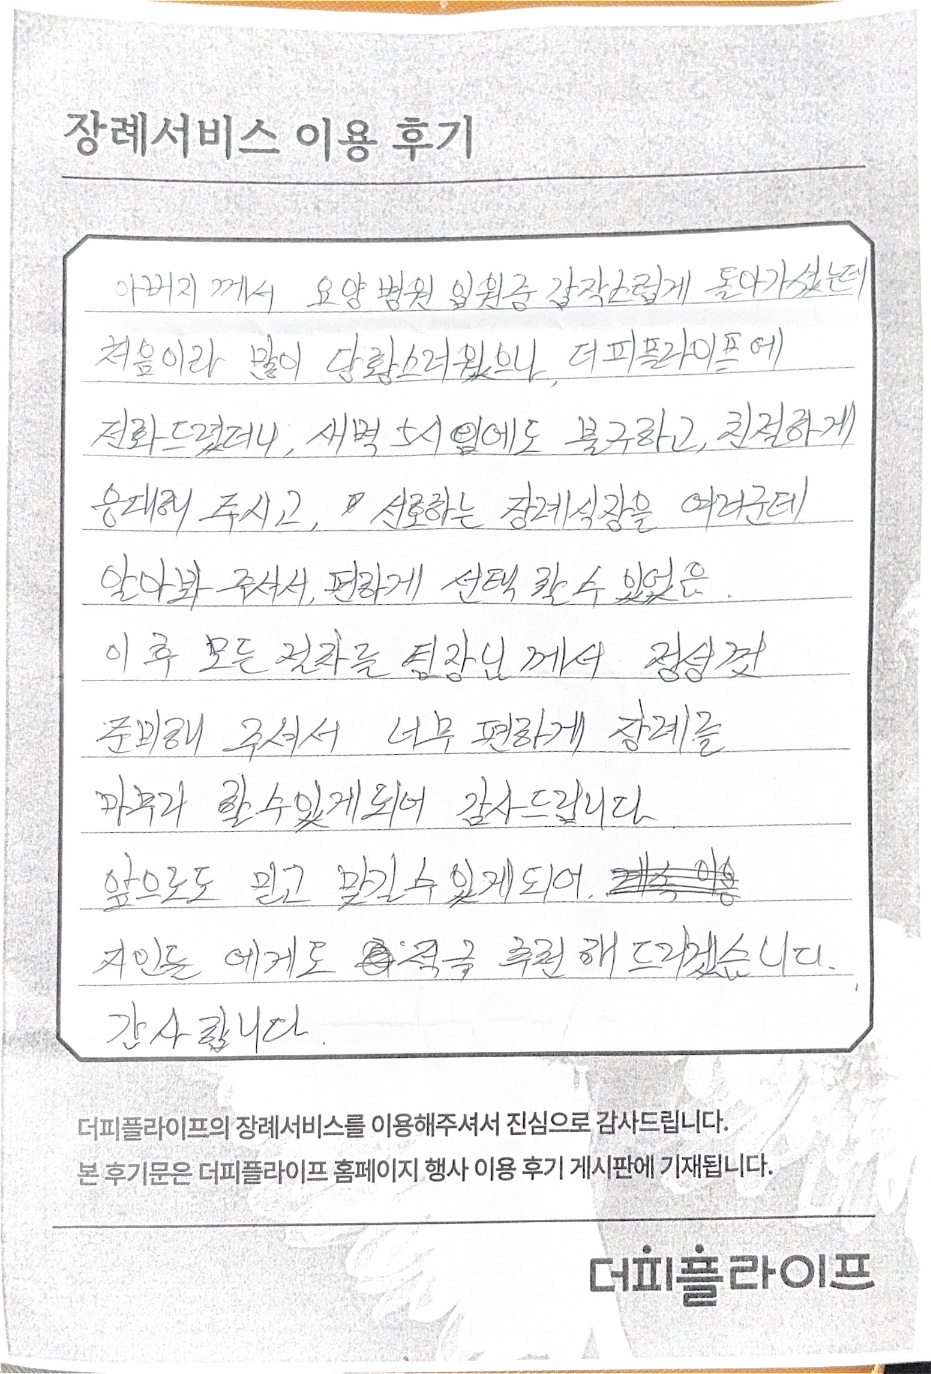 장례서비스 이용 후기
아버지 께서 요양병원 입원중 갑작스럽게 돌아가셨는데
처음이라 많이 당황스러웠으나, 더피플라이프에
전화드렸더니, 새벽 5시임에도 불구하고, 친절하게
응대해 주시고, 선호하는 장례식장을 여러군데
알아봐 주셔서, 편하게 선택 할 수 있었음.
이후 모든 절차를 팀장님 께서 정성껏
준비해 주셔서 너무 편하게 장례를
마무리 할 수 있게되어 감사드립니다
앞으로도 믿고 맞길 수 있게되어.
지인들 에게도 적극 추천해 드리겠습니다.
감사합니다.
더피플라이프의 장례서비스를 이용해주셔서 진심으로 감사드립니다.
본 후기문은 더피플라이프 홈페이지 행사 이용 후기 게시판에 기재됩니다.
더피플라이프